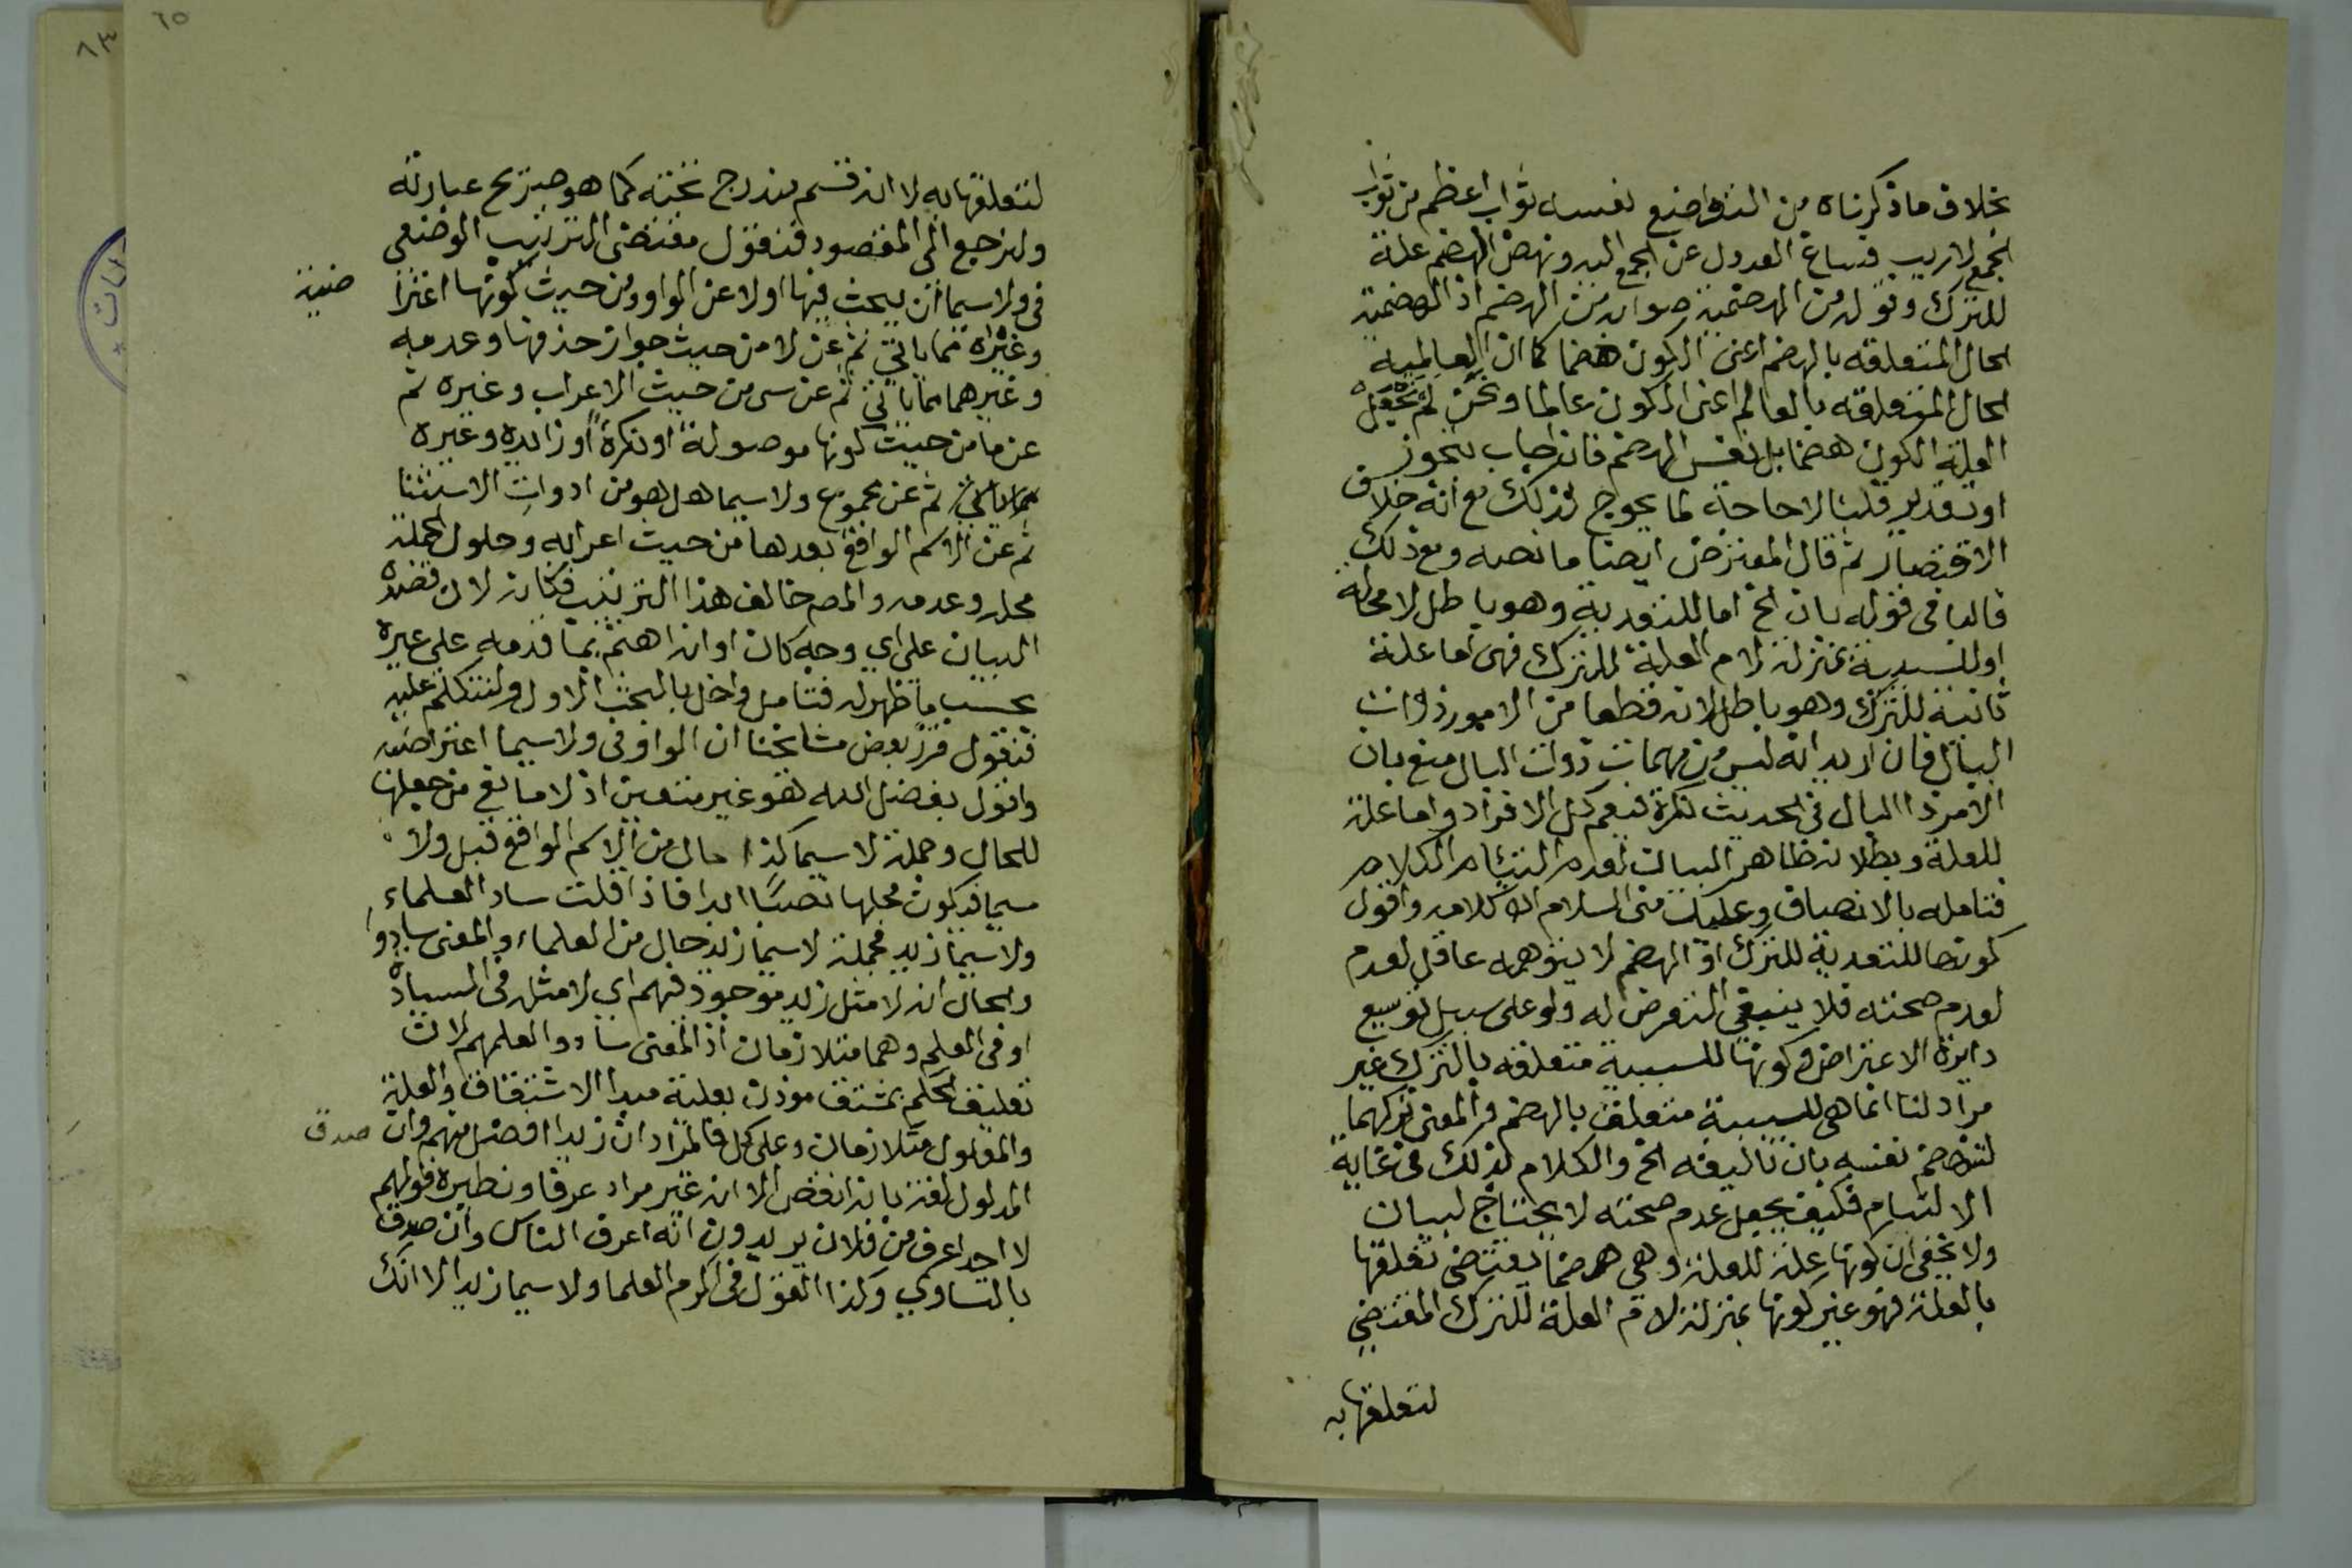 بخلاف ما ذكرناه من التواضع نفسه ثواب اعظم من ثواب
الجمع لا ريب فساغ العدول عن الجمع اليه ونهض الهضم علة
للترك وقوله من الهضمية صوابه من الهضم اذ الهضمية
الحال المتعلقه بالهضم اعنى الكون هضما كما ان العالمية
الحال المتعلقه بالعالم اعنى الكون عالما ونحن لم نجعل
العلة الكون هضما بل نفس الهضم فان اجاب بتجوز
او تقدير قلنا لا حاجة لما يحوج لذلك مع انه خلاف
الاقتصار ثم قال المعترض ايضا ما نصه ومع ذلك
فالبا فى قوله بان الخ اما للتعدية وهو باطل لا محالة
او للسببية بمنزلة لام العلة للترك فهى اما علة
ثانية للترك وهو باطل لانه قطعا من الامور ذوات
البال فان اريد انه ليس من مهمات ذوات البال منع بان
الامر ذا البال فى الحديث نكرة فيعم كل الافراد واما علة
للعلة وبطلانه ظاهر البيان لعدم التئام الكلام
فتامله بالانصاف وعليك منى السلام اه كلامه واقول
كونها للتعدية للترك او الهضم لا يتوهمه عاقل لعدم
لعدم صحته فلا ينبغى التعرض له ولو على سبيل توسيع
دايرة الاعتراض وكونها للسببية متعلقه بالترك غير
مراد لنا انما هى للسببية متعلقة بالهضم والمعنى تركهما
لتهضم نفسه بان تاليفه الخ والكلام لذلك فى غاية
الالتيام فكيف يجعل عدم صحته لا يحتاج لبيان
ولا يخفى ان كونها علة للعلة وهى هضما يقتضى تعلقها
بالعلة فهو غير كونها بمنزلة لام العلة للترك المقتضى
لتعلقها به
٦٥
٨٣
لتعلقها به لا انه قسم يندرج تحته كما هو صريح عبارته
ولنرجع الى المقصود فنقول مقتضى الترتيب الوضعى
فى ولا سيما ان يبحث فيها اولا عن الواو ومن حيث كونها اعترا
ضية
وغيرها مما ياتى ثم عن لا من حيث جواز حذفها وعدمه
وغيرهما مما ياتى ثم عن سى من حيث الاعراب وغيره ثم
عن ما من حيث كونها موصولة او نكرة او زايده وغيره
مما ياتى ثم عن مجموع ولا سيما هل هو من ادوات الاستثنا
ثم عن الاسم الواقع بعدها من حيث اعرابه وحلول الجملة
محله وعدمه والمص خالف هذا الترتيب فكانه لان قصده
البيان على اي وجه كان او انه اهتم بما قدمه على غيره
بحسب ما ظهر له فتامل واخل بالبحث الاول ولنتكلم عليه
فنقول قرر بعض مشايخنا ان الواو فى ولا سيما اعتراضيه
واقول بفضل الله هو غير متعين اذ لا مانع من جعلها
للحال وجملة لا سيما كذا حال من الاسم الواقع قبل ولا
سيما فيكون محلها نصبا ابدا فاذا قلت ساد العلماء
ولا سيما زيد فجملة لا سيما زيد حال من العلماء والمعنى سادوا
والحال انه لا مثل زيد موجود فيهم اي لا مثل فى السيادة
او فى العلم وهما متلازمان اذ المعنى سادوا لعلمهم لان
تعليق الحكم بمشتق موذن بعلية مبدا الاشتقاق والعلة
والمعلول متلازمان وعلى كل فالمراد ان زيدا افضل منهم وان صدق
المدلول لغة بانه انقص الا انه غير مراد عرفا ونظيره قولهم
لا احد اعرف من فلان يريدون انه اعرف الناس وان صدق
بالتساوي وكذا القول فى اكرم العلما ولا سيما زيدا الا انك